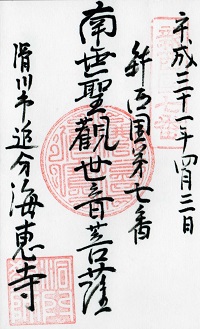 平成三十一年四月三日
新西国第七番
南無聖觀世音菩薩
滑川市追分海恵寺